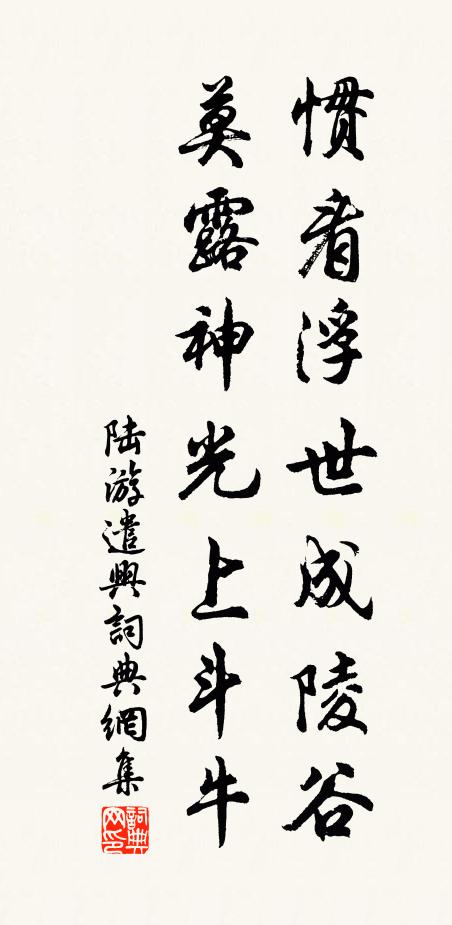 惯看浮世成陵谷
莫露神光上斗牛
陆游遣興詞典網集
詞典网印